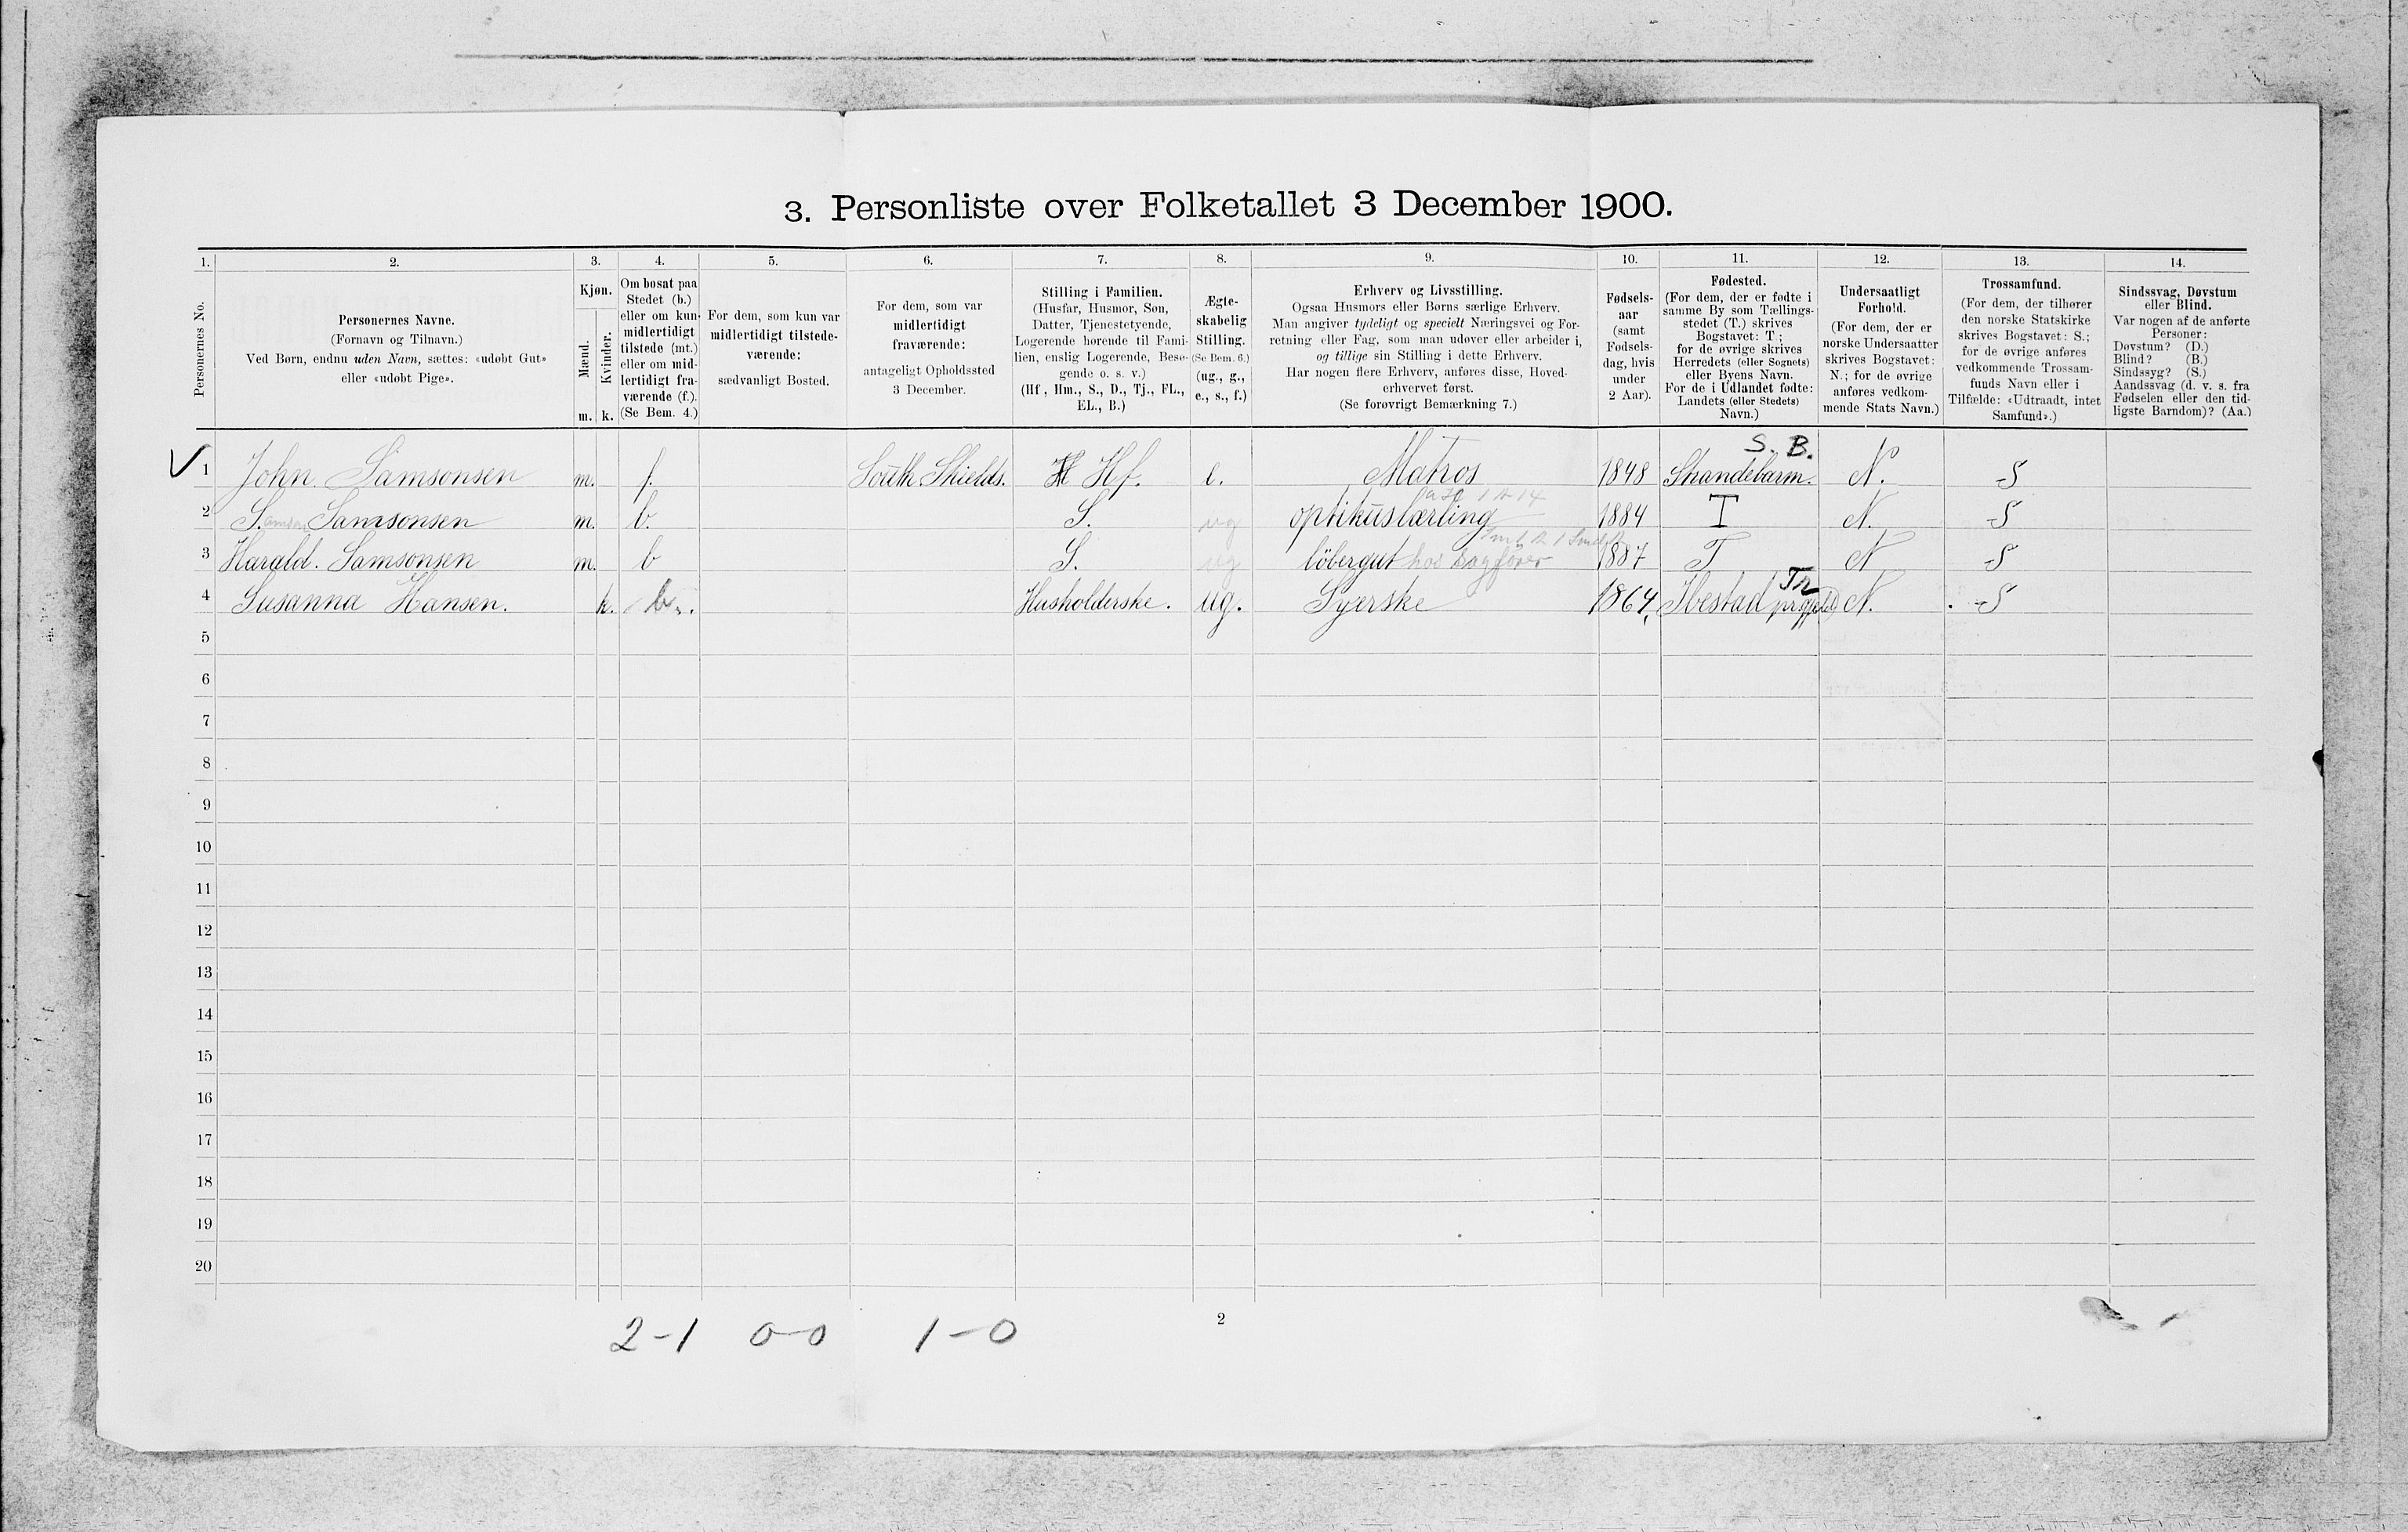 3. Personliste over Folketallet 3 December 1900.
1. 2. 3. 4. 5. 6. 7. 8. 9. 10. 11. 12. 13. 14.
Personernes No.
Personernes Navne.
(Fornavn og Tilnavn.)
Ved Børn, endnu uden Navn, sættes: «udøbt Gut»
eller «udøbt Pige».
Kjøn.
Mænd.
Kvinder.
m. k.
Om bosat paa
Stedet (b.)
eller om kun
midlertidigt
tilstede (mt.)
eller om mid-
lertidigt fra-
værende (f.).
(Se Bem. 4.)
For dem, som kun var
midlertidigt tilstede-
værende:
sædvanligt Bosted.
For dem, som var
midlertidigt
fraværende:
antageligt Opholdssted
3 December.
Stilling i Familien.
(Husfar, Husmor, Søn,
Datter, Tjenestetyende,
Logerende hørende til Fami-
lien, enslig Logerende, Besø-
gende o. s. v.)
(Hf, Hm., S., D., Tj., FL.,
EL., B.)
Ægte-
skabelig
Stilling.
(Se Bem. 6.)
(ug., g.,
e., s., f.)
Erhverv og Livsstilling.
Ogsaa Husmors eller Børns særlige Erhverv.
Man angiver tydeligt og specielt Næringsvei og For-
retning eller Fag, som man udøver eller arbeider i,
og tillige sin Stilling i dette Erhverv.
Har nogen flere Erhverv, anføres disse, Hoved-
erhvervet først.
(Se forøvrigt Bemærkning 7.)
Fødsels-
aar
(samt
Fødsels-
dag, hvis
under
2 Aar).
Fødested.
(For dem, der er fødte i
samme By som Tællings-
stedet (T.) skrives
Bogstavet: T.;
for de øvrige skrives
Herredets (eller Sognets)
eller Byens Navn.
For de i Udlandet fødte:
Landets (eller Stedets)
Navn.)
Undersaatligt
Forhold.
(For dem, der er
norske Undersaatter
skrives Bogstavet:
N.; for de øvrige
anføres vedkom-
mende Stats Navn.)
Trossamfund.
(For dem, der tilhører
den norske Statskirke
skrives Bogstavet: S.;
for de øvrige anføres
vedkommende Trossam-
funds Navn eller i
Tilfælde: «Udtraadt, intet
Samfund».)
Sindssvag, Døvstum
eller Blind.
Var nogen af de anførte
Personer:
Døvstum? (D.)
Blind? (B.)
Sindssyg? (S.)
Aandssvag (d. v. s. fra
Fødselen eller den tid-
ligste Barndom)? (Aa.)
S. B.
1 John. Samsonsen m. f. South Shields. Hf. e. Matros 1848 Strandebarm. N. S
2 Samson Samsonsen m. b. S. ug optikuslærling 1884 T N. S
3 Harald. Samsonsen m. b S. ug löbergut hos Sagfører 1887 T N S
Tr
4 Susanna Hansen. k. b. Husholderske. ug. Syerske 1864, Ibestad prgjeld N. S
5
6
7
8
9
10
11
12
13
14
15
16
17
18
19
20
2-1 0-0 1-0
2